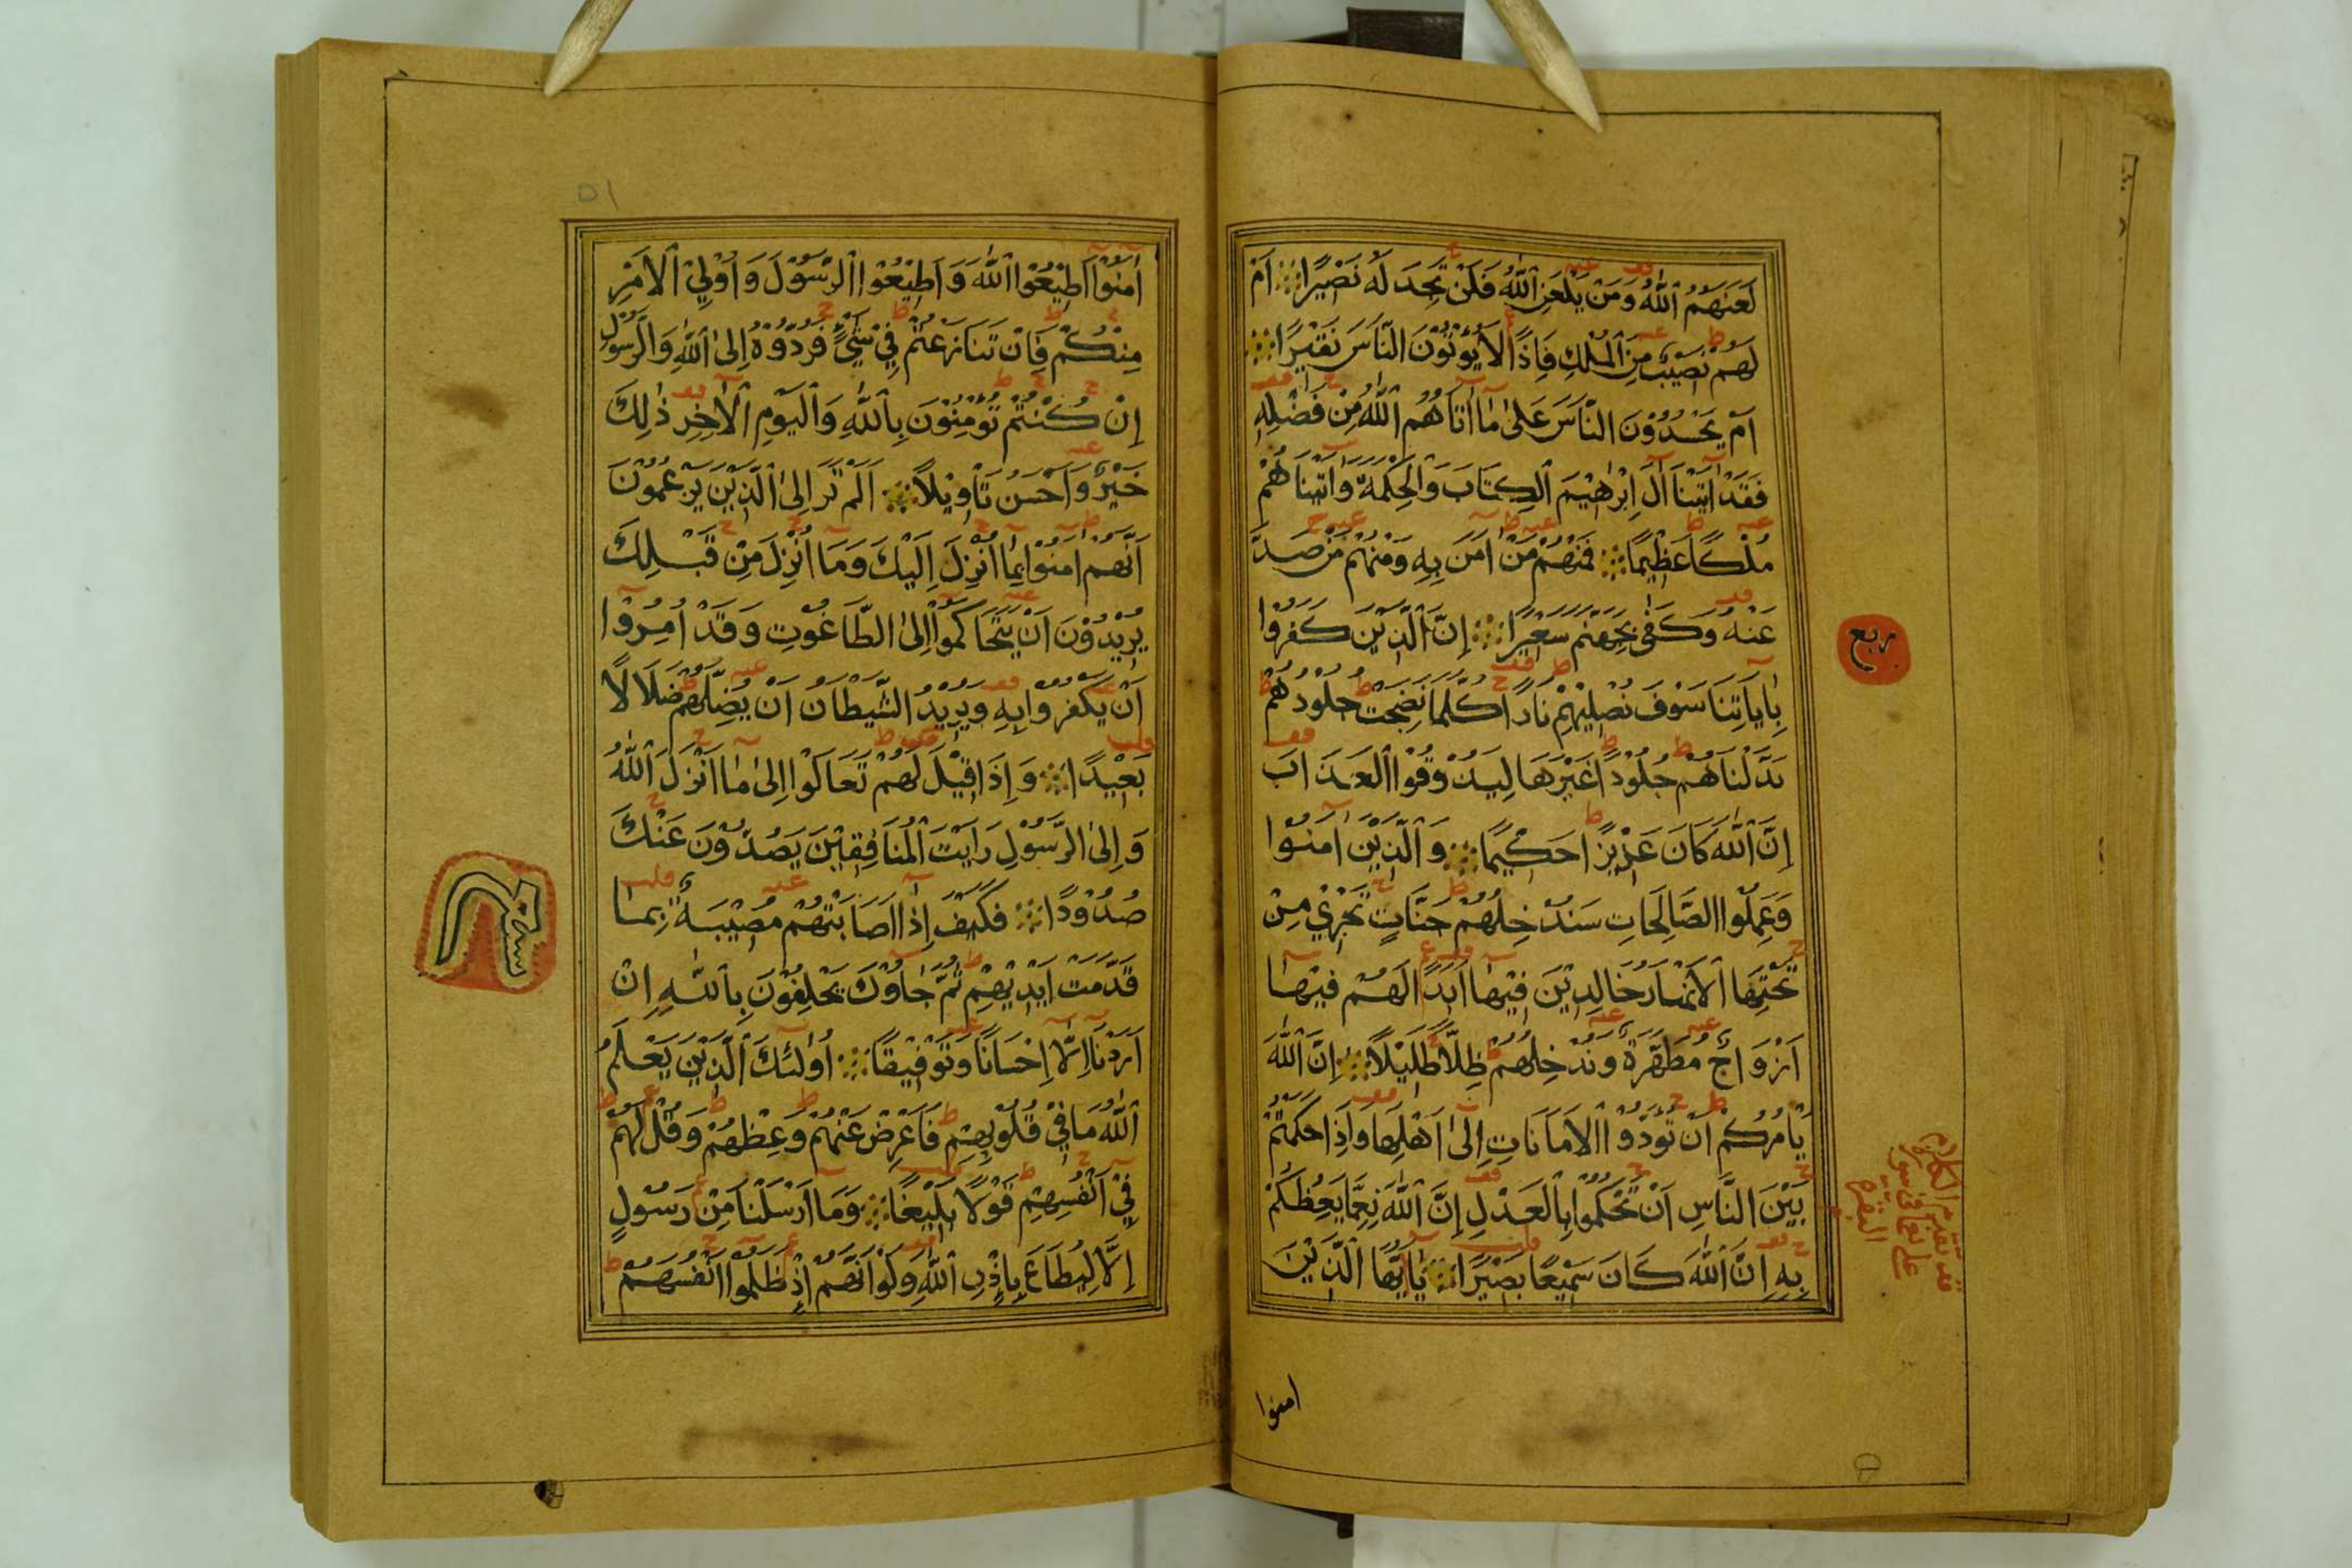 لَعَنَهُمُ اللّٰهُ وَمَنْ يَلْعَنِ اللّٰهُ فَلَنْ تَجِدَ لَهُ نَصِيْرًا اَمْ
لَهُمْ نَصِيْبٌ مِنَ الْمُلْكِ فَاِذًا لَا يُؤْتُوْنَ النَّاسَ نَقِيْرًا
اَمْ يَحْسُدُوْنَ النَّاسَ عَلٰى مَا اٰتَاهُمُ اللّٰهُ مِنْ فَضْلِهِ
فَقَدْ اٰتَيْنَا اٰلَ اِبْرٰهِيْمَ الْكِتَابَ وَالْحِكْمَةَ وَاٰتَيْنَاهُمْ
مُلْكًا عَظِيْمًا فَمِنْهُمْ مَنْ اٰمَنَ بِهِ وَمِنْهُمْ مَنْ صَدَّ
عَنْهُ وَكَفٰى بِجَهَنَّمَ سَعِيْرًا اِنَّ الَّذِيْنَ كَفَرُوْا
بِاٰيَاتِنَا سَوْفَ نُصْلِيْهِمْ نَارًا كُلَّمَا نَضِجَتْ جُلُوْدُهُمْ
بَدَّلْنَاهُمْ جُلُوْدًا غَيْرَهَا لِيَذُوْقُوا الْعَذَابَ
اِنَّ اللّٰهَ كَانَ عَزِيْزًا حَكِيْمًا وَالَّذِيْنَ اٰمَنُوْا
وَعَمِلُوا الصَّالِحَاتِ سَنُدْخِلُهُمْ جَنَّاتٍ تَجْرِيْ مِنْ
تَحْتِهَا الْاَنْهَارُ خَالِدِيْنَ فِيْهَا اَبَدًا لَهُمْ فِيْهَا
اَزْوَاجٌ مُطَهَّرَةٌ وَنُدْخِلُهُمْ ظِلًّا ظَلِيْلًا اِنَّ اللّٰهَ
يَاْمُرُكُمْ اَنْ تُؤَدُّوا الْاَمَانَاتِ اِلٰى اَهْلِهَا وَاِذَا حَكَمْتُمْ
بَيْنَ النَّاسِ اَنْ تَحْكُمُوْا بِالْعَدْلِ اِنَّ اللّٰهَ نِعِمَّا يَعِظُكُمْ
بِهِ اِنَّ اللّٰهَ كَانَ سَمِيْعًا بَصِيْرًا يَا اَيُّهَا الَّذِيْنَ
امنوا
ربع
٥١
اٰمَنُوْا اَطِيْعُوا اللّٰهَ وَاَطِيْعُوا الرَّسُوْلَ وَاُولِي الْاَمْرِ
مِنْكُمْ فَاِنْ تَنَازَعْتُمْ فِيْ شَيْءٍ فَرُدُّوْهُ اِلَى اللّٰهِ وَالرَّسُوْلِ
اِنْ كُنْتُمْ تُؤْمِنُوْنَ بِاللّٰهِ وَالْيَوْمِ الْاٰخِرِ ذٰلِكَ
خَيْرٌ وَاَحْسَنُ تَاْوِيْلًا اَلَمْ تَرَ اِلَى الَّذِيْنَ يَزْعُمُوْنَ
اَنَّهُمْ اٰمَنُوْا بِمَا اُنْزِلَ اِلَيْكَ وَمَا اُنْزِلَ مِنْ قَبْلِكَ
يُرِيْدُوْنَ اَنْ يَتَحَاكَمُوْا اِلَى الطَّاغُوْتِ وَقَدْ اُمِرُوْا
اَنْ يَكْفُرُوْا بِهِ وَيُرِيْدُ الشَّيْطَانُ اَنْ يُضِلَّهُمْ ضَلَالًا
بَعِيْدًا وَاِذَا قِيْلَ لَهُمْ تَعَالَوْا اِلٰى مَا اَنْزَلَ اللّٰهُ
وَاِلَى الرَّسُوْلِ رَاَيْتَ الْمُنَافِقِيْنَ يَصُدُّوْنَ عَنْكَ
صُدُوْدًا فَكَيْفَ اِذَا اَصَابَتْهُمْ مُصِيْبَةٌ بِمَا
قَدَّمَتْ اَيْدِيْهِمْ ثُمَّ جَاؤُكَ يَحْلِفُوْنَ بِاللّٰهِ اِنْ
اَرَدْنَا اِلَّا اِحْسَانًا وَتَوْفِيْقًا اُولٰئِكَ الَّذِيْنَ يَعْلَمُ
اللّٰهُ مَا فِيْ قُلُوْبِهِمْ فَاَعْرِضْ عَنْهُمْ وَعِظْهُمْ وَقُلْ لَهُمْ
فِيْ اَنْفُسِهِمْ قَوْلًا بَلِيْغًا وَمَا اَرْسَلْنَا مِنْ رَسُوْلٍ
اِلَّا لِيُطَاعَ بِاِذْنِ اللّٰهِ وَلَوْ اَنَّهُمْ اِذْ ظَلَمُوْا اَنْفُسَهُمْ